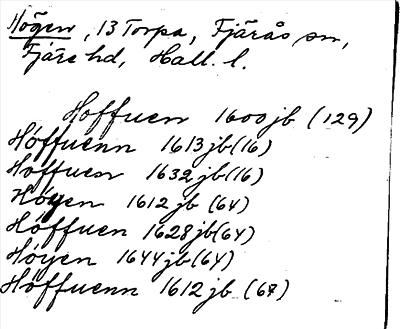 Högen, 13 Torpa, Fjärås sn,
Fjäre hd, Hall. l.
Hoffuen 1600 jb (129)
Höffuenn 1613 jb (16)
Hoffuen 1632 jb (16)
Høyen 1612 jb (64)
Höffuen 1628 jb (64)
Höyen 1644 jb (64)
Höffuenn 1612 jb (67)